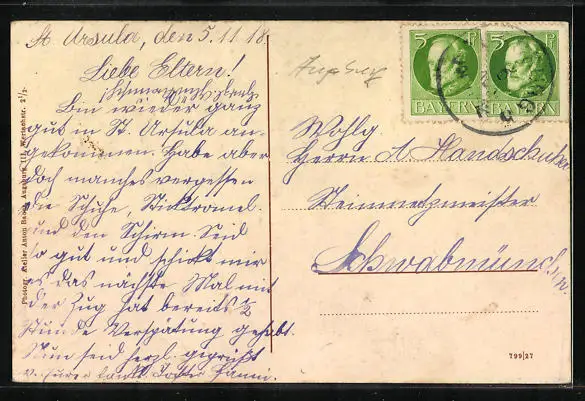 St. Ursula, den 5.11.18.
Liebe Eltern!
Bin wieder ganz
gut in St. Ursula an-
gekommen. Habe aber
doch manches vergessen
die Schuhe,
und den Schirm. Seid
so gut und schickt mir
es das nächste Mal mit
der Zug hat bereits ½
Stunde Verspätung gehabt.
Nun seid herzl. gegrüßt
v. Eurer dankb. Tochter Fanni.
Photogr. Atelier Anton Augsburg III, Wertachstr. 2 1/2
Augsburg
5 Pf 5 Pf
BAYERN BAYERN
Wohlg.
Herrn A. Handschuher
Steinmetzmeister
Schwabmünchen.
799/27